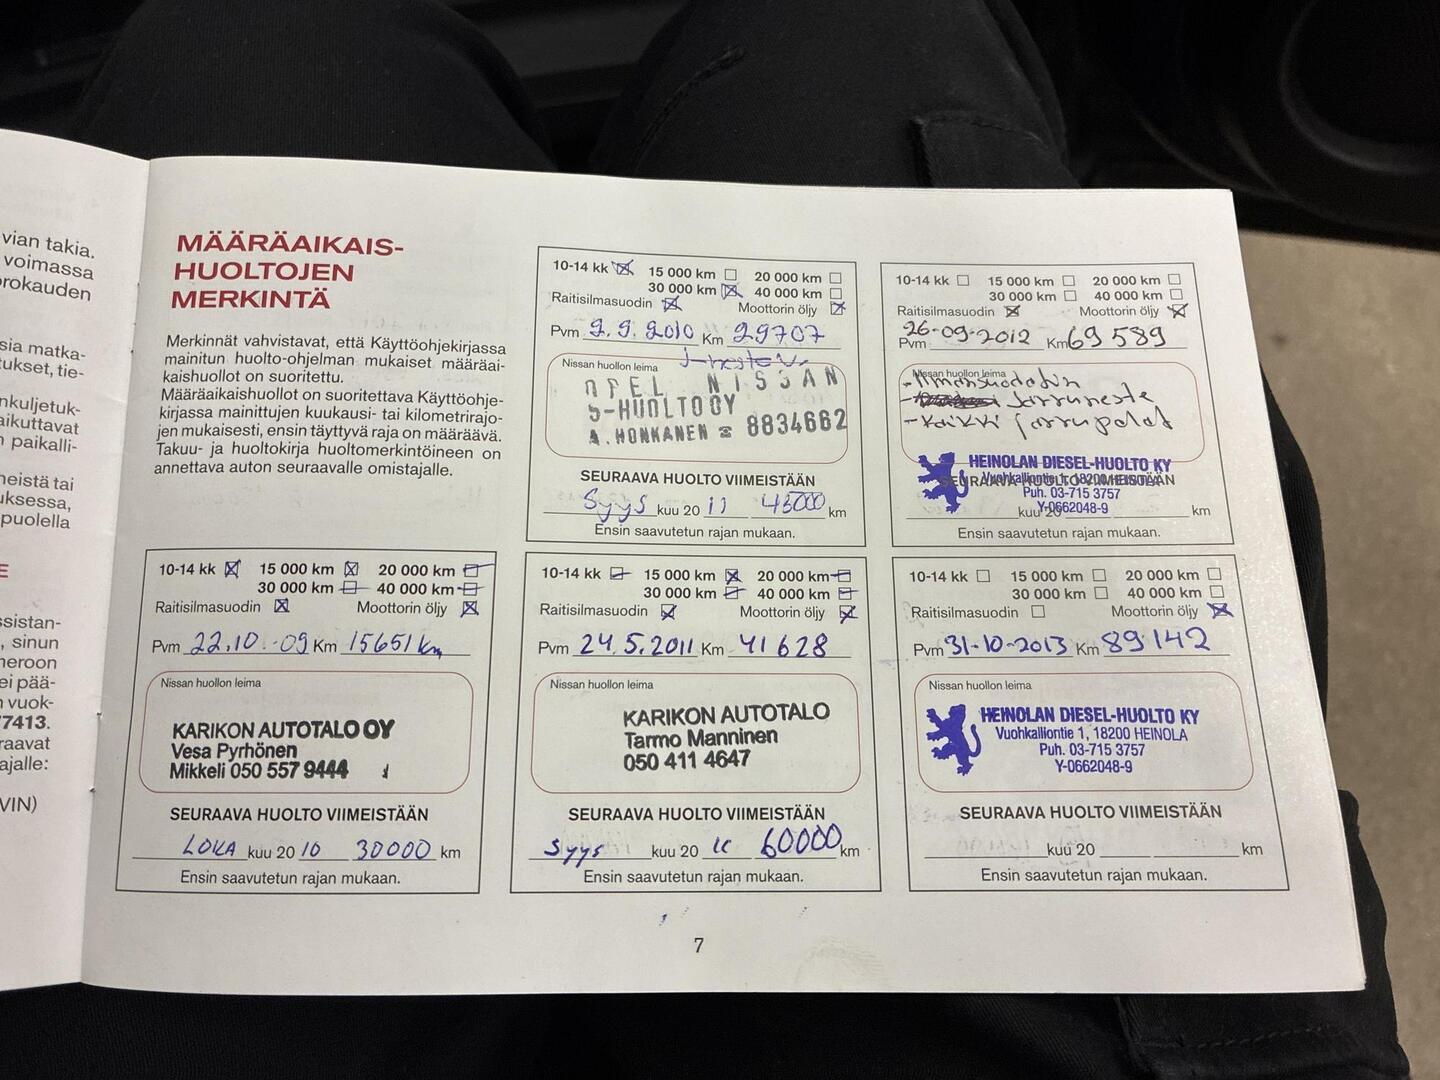 vian takia.
voimassa
rokauden
sia matka-
tukset, tie-
nkuljetuk-
aikuttavat
n paikalli-
neistä tai
uksessa,
puolella
E
ssistan-
, sinun
neroon
ei pää-
n vuok-
77413.
raavat
ajalle:
VIN)
MÄÄRÄAIKAIS-
HUOLTOJEN
MERKINTÄ
Merkinnät vahvistavat, että Käyttöohjekirjassa
mainitun huolto-ohjelman mukaiset määräai-
kaishuollot on suoritettu.
Määräaikaishuollot on suoritettava Käyttöohje-
kirjassa mainittujen kuukausi- tai kilometrirajo-
jen mukaisesti, ensin täyttyvä raja on määräävä.
Takuu- ja huoltokirja huoltomerkintöineen on
annettava auton seuraavalle omistajalle.
10-14 kk 15 000 km 20 000 km
30 000 km 40 000 km
Raitisilmasuodin Moottorin öljy
Pvm 22.10.-09 Km 15651 km
Nissan huollon leima
KARIKON AUTOTALO OY
Vesa Pyrhönen
Mikkeli 050 557 9444
SEURAAVA HUOLTO VIIMEISTÄÄN
LOKA kuu 20 10 30000 km
Ensin saavutetun rajan mukaan.
10-14 kk 15 000 km 20 000 km
30 000 km 40 000 km
Raitisilmasuodin Moottorin öljy
Pvm 2.9.2010 Km 29707
Nissan huollon leima
OPEL NISSAN
S-HUOLTO OY
A. HONKANEN ☎ 8834662
SEURAAVA HUOLTO VIIMEISTÄÄN
Syys kuu 20 11 45000 km
Ensin saavutetun rajan mukaan.
10-14 kk 15 000 km 20 000 km
30 000 km 40 000 km
Raitisilmasuodin Moottorin öljy
Pvm 24.5.2011 Km 41628
Nissan huollon leima
KARIKON AUTOTALO
Tarmo Manninen
050 411 4647
SEURAAVA HUOLTO VIIMEISTÄÄN
Syys kuu 20 60000 km
Ensin saavutetun rajan mukaan.
10-14 kk 15 000 km 20 000 km
30 000 km 40 000 km
Raitisilmasuodin Moottorin öljy
Pvm 26-09-2012 Km 69589
Nissan huollon leima
- Ilmansuodatin
- Jarruneste
- kaikki jarrupalat
HEINOLAN DIESEL-HUOLTO KY
SEURAAVA HUOLTO VIIMEISTÄÄN
Vuohkalliontie 1, 18200 HEINOLA
Puh. 03-715 3757
Y-0662048-9
kuu 20 km
Ensin saavutetun rajan mukaan.
10-14 kk 15 000 km 20 000 km
30 000 km 40 000 km
Raitisilmasuodin Moottorin öljy
Pvm 31-10-2013 Km 89142
Nissan huollon leima
HEINOLAN DIESEL-HUOLTO KY
Vuohkalliontie 1, 18200 HEINOLA
Puh. 03-715 3757
Y-0662048-9
SEURAAVA HUOLTO VIIMEISTÄÄN
kuu 20 km
Ensin saavutetun rajan mukaan.
7